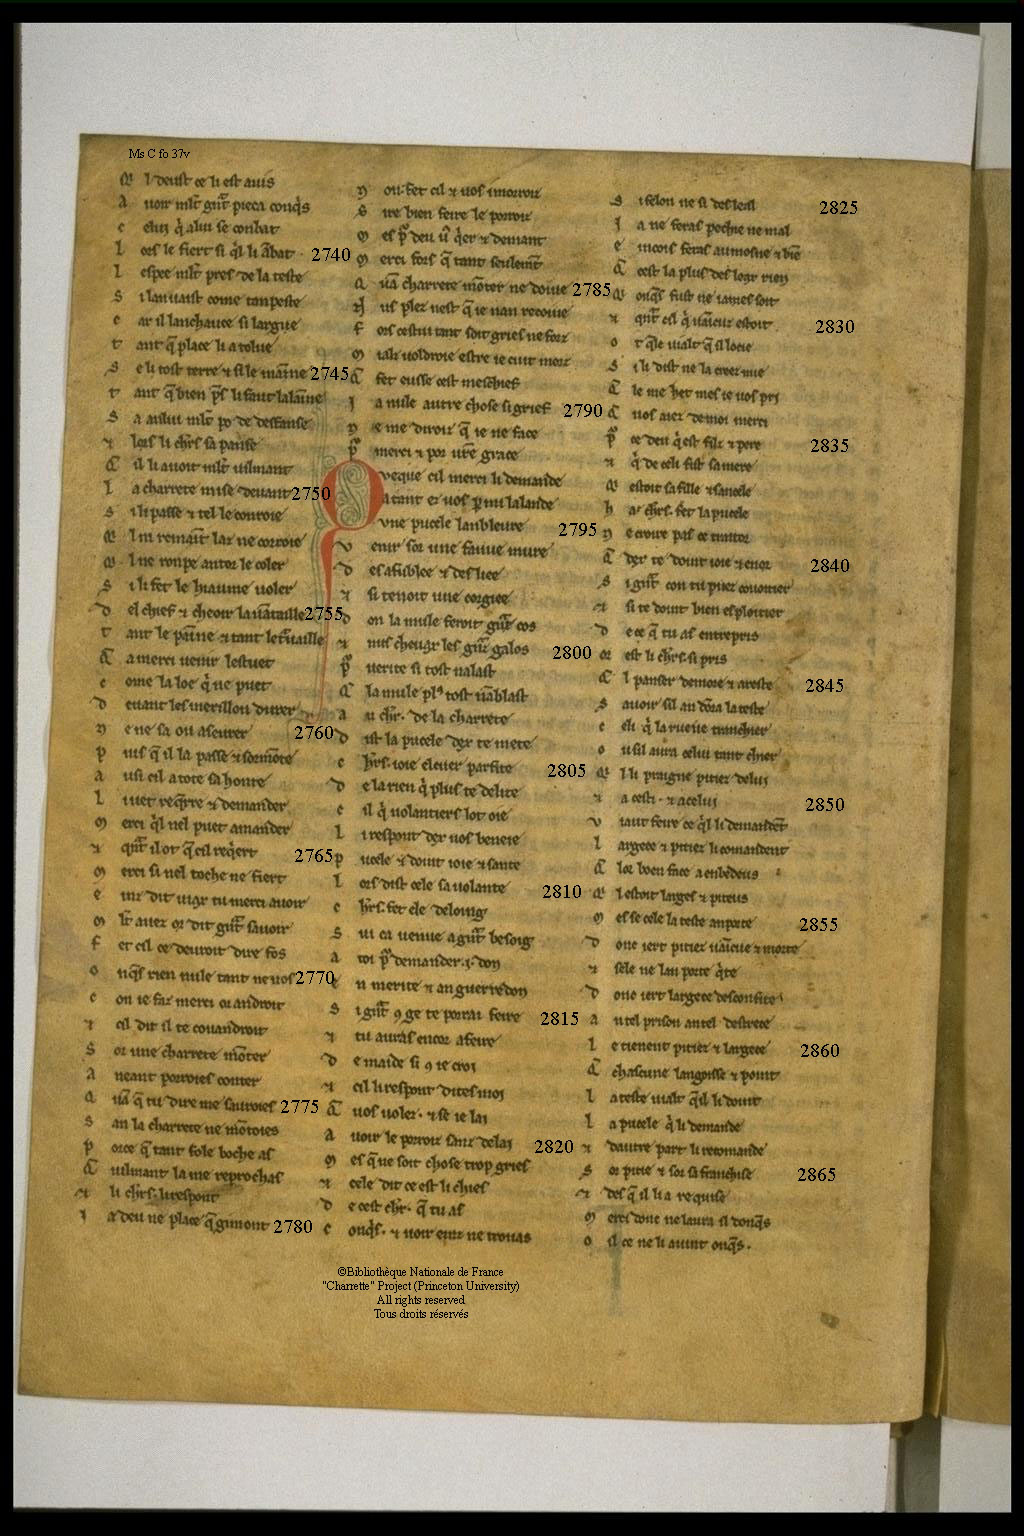 Ms C fo 37v
Q l deust ce li est auis
A uoir ml't gnt pieca conq̃s
C elui q̃ a lui se conbat
L ors le fiert si q̃l li abat 2740
L espee ml't pres de la teste
S i lanuaist come tanpeste
C ar il lanchauce si largue
T ant q̃ place li a tolue
S e li tost terre & si le maine 2745
T ant q̃ bien p̃s li faut lalaine
S a an lui ml't po de desfanse
& lors li chrs sa panse
Q il li auoit ml't uilmant
L a charrete mise deuant 2750
S i li passe & tel le conroie
Q l ni remaint laz ne corroie
Q l ne ronpe antor le coler
S i li fet le hiaume uoler
D el chief & cheoir la uantaille 2755
T ant le paine & tant le trauaille
Q a merci uenir lestuet
C ome laloe q̃ ne puet
D euant les merillon durer
N e ne sa ou aseurer 2760
P uis q̃ il la passe & sormote
A usi cil a tote sa honte
L i uet req̃rre & demander
M erci q̃l nel puet amander
& qnt il ot q̃ cil req̃ert 2765
M erci si nel toche ne fiert
E inz dit uiax tu merci auoir
M l't auez or dit gnt sauoir
F et cil ce deuroit dire fos
O nq̃s rien nule tant ne uos 2770
C on ie faz merci orandroit
& cil dit il te couandroit
S or une charrete moter
A neant porroies conter
Q uan q̃ tu dire me sauroies 2775
S an la charrete ne motoies
P orce q̃ tant fole boche as
Q uilmant la me reprochas
& li chrs. li respont
I a deu ne place q̃ gi mont 2780
N on. fet cil & uos i morroiz
S ire bien feire le porroiz
M es p̃ deu uos q̃er & demant
M erci fors q̃ tant seulemt
Q uan charrete moter ne doiue 2785
N us plez nest q̃ ie nan recoiue
F ors cestui tant soit griés ne forz
M ialz uoldroie estre ie cuit morz
Q fet eusse cest meschief
I a nule autre chose si grief 2790
N e me diroiz q̃ ie ne face
P merci & por ure grace
Q ueque cil merci li demande
Atant ez uos p̃mi la lande
Vne pucele lanbleure 2795
V enir sor une fauue mure
D esafublee & desliee
& si tenoit une corgiee
D on la mule feroit gnz cos
& nus cheuax les gnz galos 2800
P uerite si tost nalast
Q la mule pl9 tost nanblast
A u chr. de la charrete
D ist la pucele dex te mete
C hrs. ioie el cuer parfite 2805
D e la rien q̃ plus te delite
C il q̃ uolantiers lot oie
L i respont dex uos beneie
P ucele & doint ioie & sante
L ors dist cele sa uolante 2810
C hrs. fet ele de loing
S ui ca uenue a gnt besoig
A toi p̃ demander .i. don
E n merite & an guerredon
S i gnt 9 ge te porrai feire 2815
& tu auras encor afeire
D e maide si 9 ie croi
& cil li respont dites moi
Q uos uolez. & se ie lai
A uoir le porroiz sanz delai 2820
M es q̃ ne soit chose trop gries
& cele dit ce est li chies
D e cest chr. q̃ tu as
C onq̃s. & uoir einz ne trouas
S i felon ne si desleal 2825
I a ne feras pechie ne mal
E incois feras aumosne & bie
Q cest la plus desleax riens
Q onq̃s fust ne iames soit
& qnt cil q̃ uaincuz estoit 2830
O t q̃le uialt q̃ il locie
S i li dist ne la creez mie
Q le me het mes ie uos pri
Q uos aiez de moi merci
P ce deu q̃ est filz & pere 2835
& q̃ de celi fist sa mere
Q estoit sa fille & sancele
H a chrs. fet la pucele
N e croire pas ce traitor
Q dex te doint ioie & enor 2840
S i gnt con tu puez couoitier
& si te doint bien esploitier
D e ce q̃ tu as entrepris
Or est li chrs. si pris
Q l panser demore & areste 2845
S auoir sil an dora la teste
C eli q̃ la rueue tranchier
O u sil aura celui tant chier
Q l li praigne pitiez de lui
& a cesti. & a celui 2850
V iaut feire ce q̃l li demandet
L argece & pitiez li comandent
Q lor boen face a enbedeus
Q l estoit larges & piteus
M es se cele la teste anporte 2855
D onc iert pitiez uaincue & morte
& sele ne lan porte q̃te
D onc iert largece desconfite
A n tel prison an tel destrece
L e tienent pitiez & largece 2860
Q chascune langoisse & point
L a teste uialt q̃ il li doint
L a pucele q̃ li demande
& dautre part li recomande
S or pitie & sor sa franchise 2865
& des q̃ il li a requise
M erci donc ne laura il donq̃s
O il ce ne li auint onq̃s.
©Bibliothèque Nationale de France
"Charrette" Project (Princeton University)
All rights reserved
Tous droits réservés